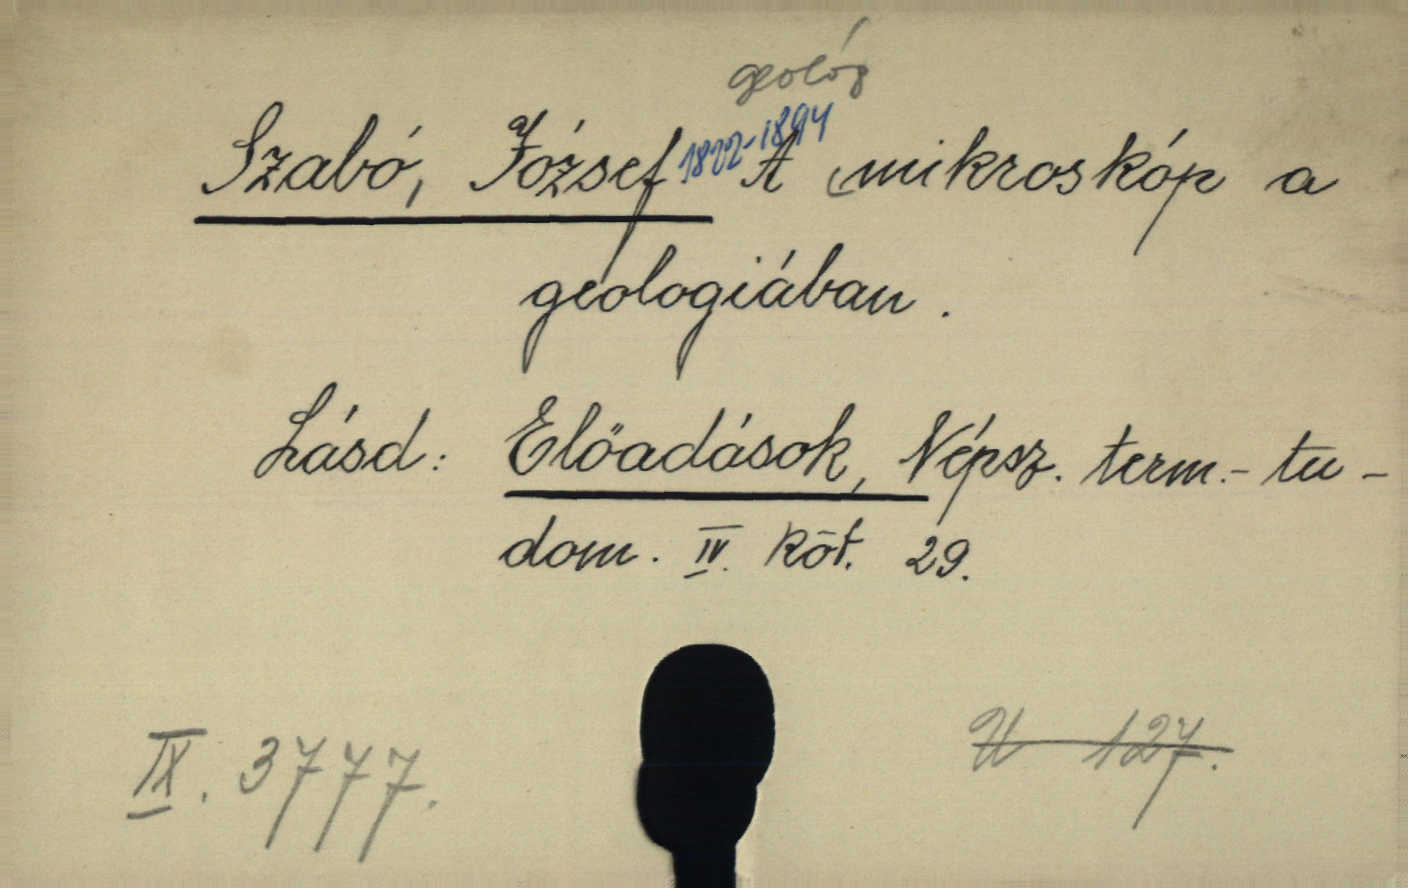 geológ
Szabó, József 1822-1894 A mikroskóp a
geologiában.
Lásd: Előadások, Népsz. term.- tu-
dom. IV. köt. 29.
IX. 3777.
U 127.